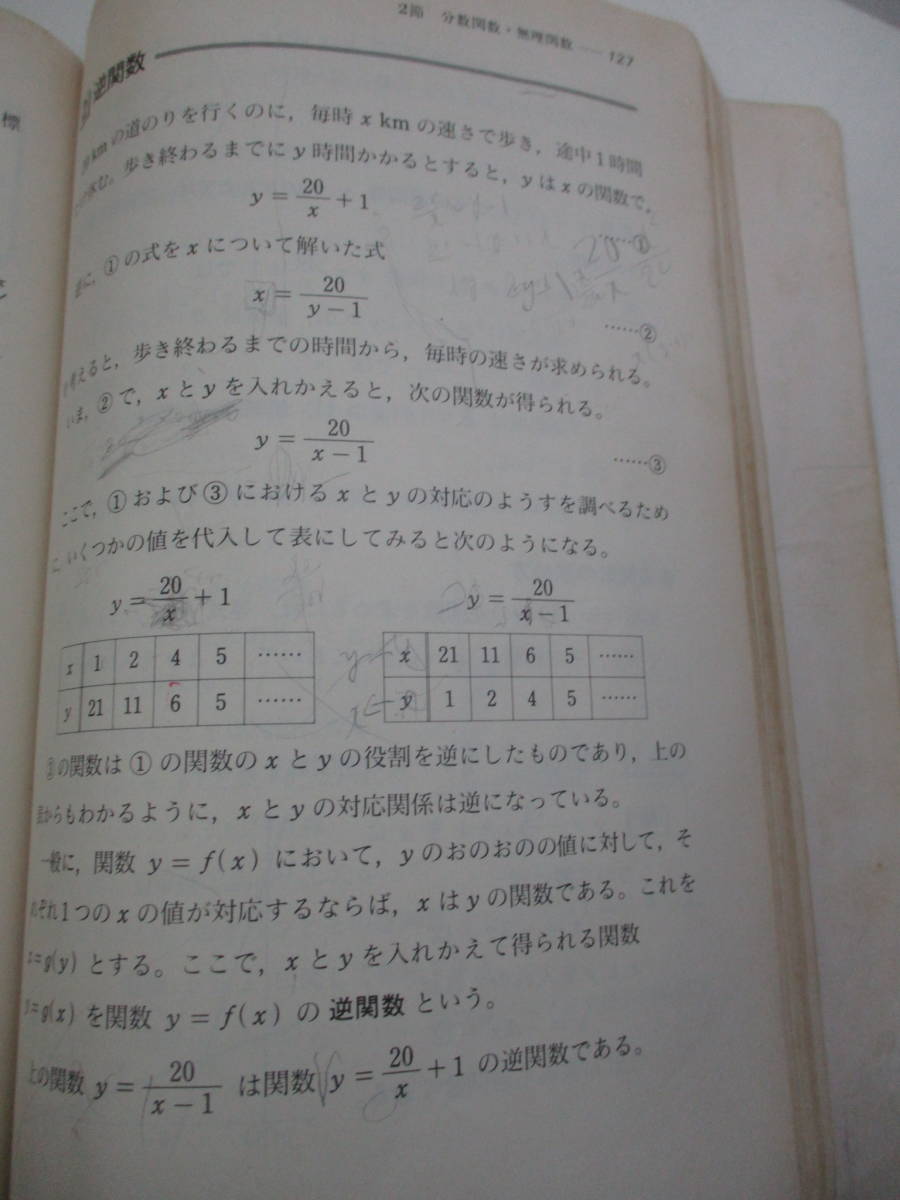 2節 分数関数・無理関数 — 127
逆関数
kmの道のりを行くのに，毎時 x km の速さで歩き，途中1時間
休む。歩き終わるまでに y 時間かかるとすると，y は x の関数で，
y = 20/x + 1 ……①
に，①の式を x について解いた式
x = 20/(y − 1) ……②
考えると，歩き終わるまでの時間から，毎時の速さが求められる。
いま，②で，x と y を入れかえると，次の関数が得られる。
y = 20/(x − 1) ……③
ここで，①および③における x と y の対応のようすを調べるため
に いくつかの値を代入して表にしてみると次のようになる。
y = 20/x + 1
y = 20/(x − 1)
x 1 2 4 5 ……
y 21 11 6 5 ……
x 21 11 6 5 ……
y 1 2 4 5 ……
の関数は①の関数の x と y の役割を逆にしたものであり，上の
からもわかるように，x と y の対応関係は逆になっている。
一般に，関数 y = f(x) において，y のおのおのの値に対して，そ
れぞれ1つの x の値が対応するならば，x は y の関数である。これを
x = g(y) とする。ここで，x と y を入れかえて得られる関数
y = g(x) を関数 y = f(x) の 逆関数 という。
上の関数 y = 20/(x − 1) は関数 y = 20/x + 1 の逆関数である。